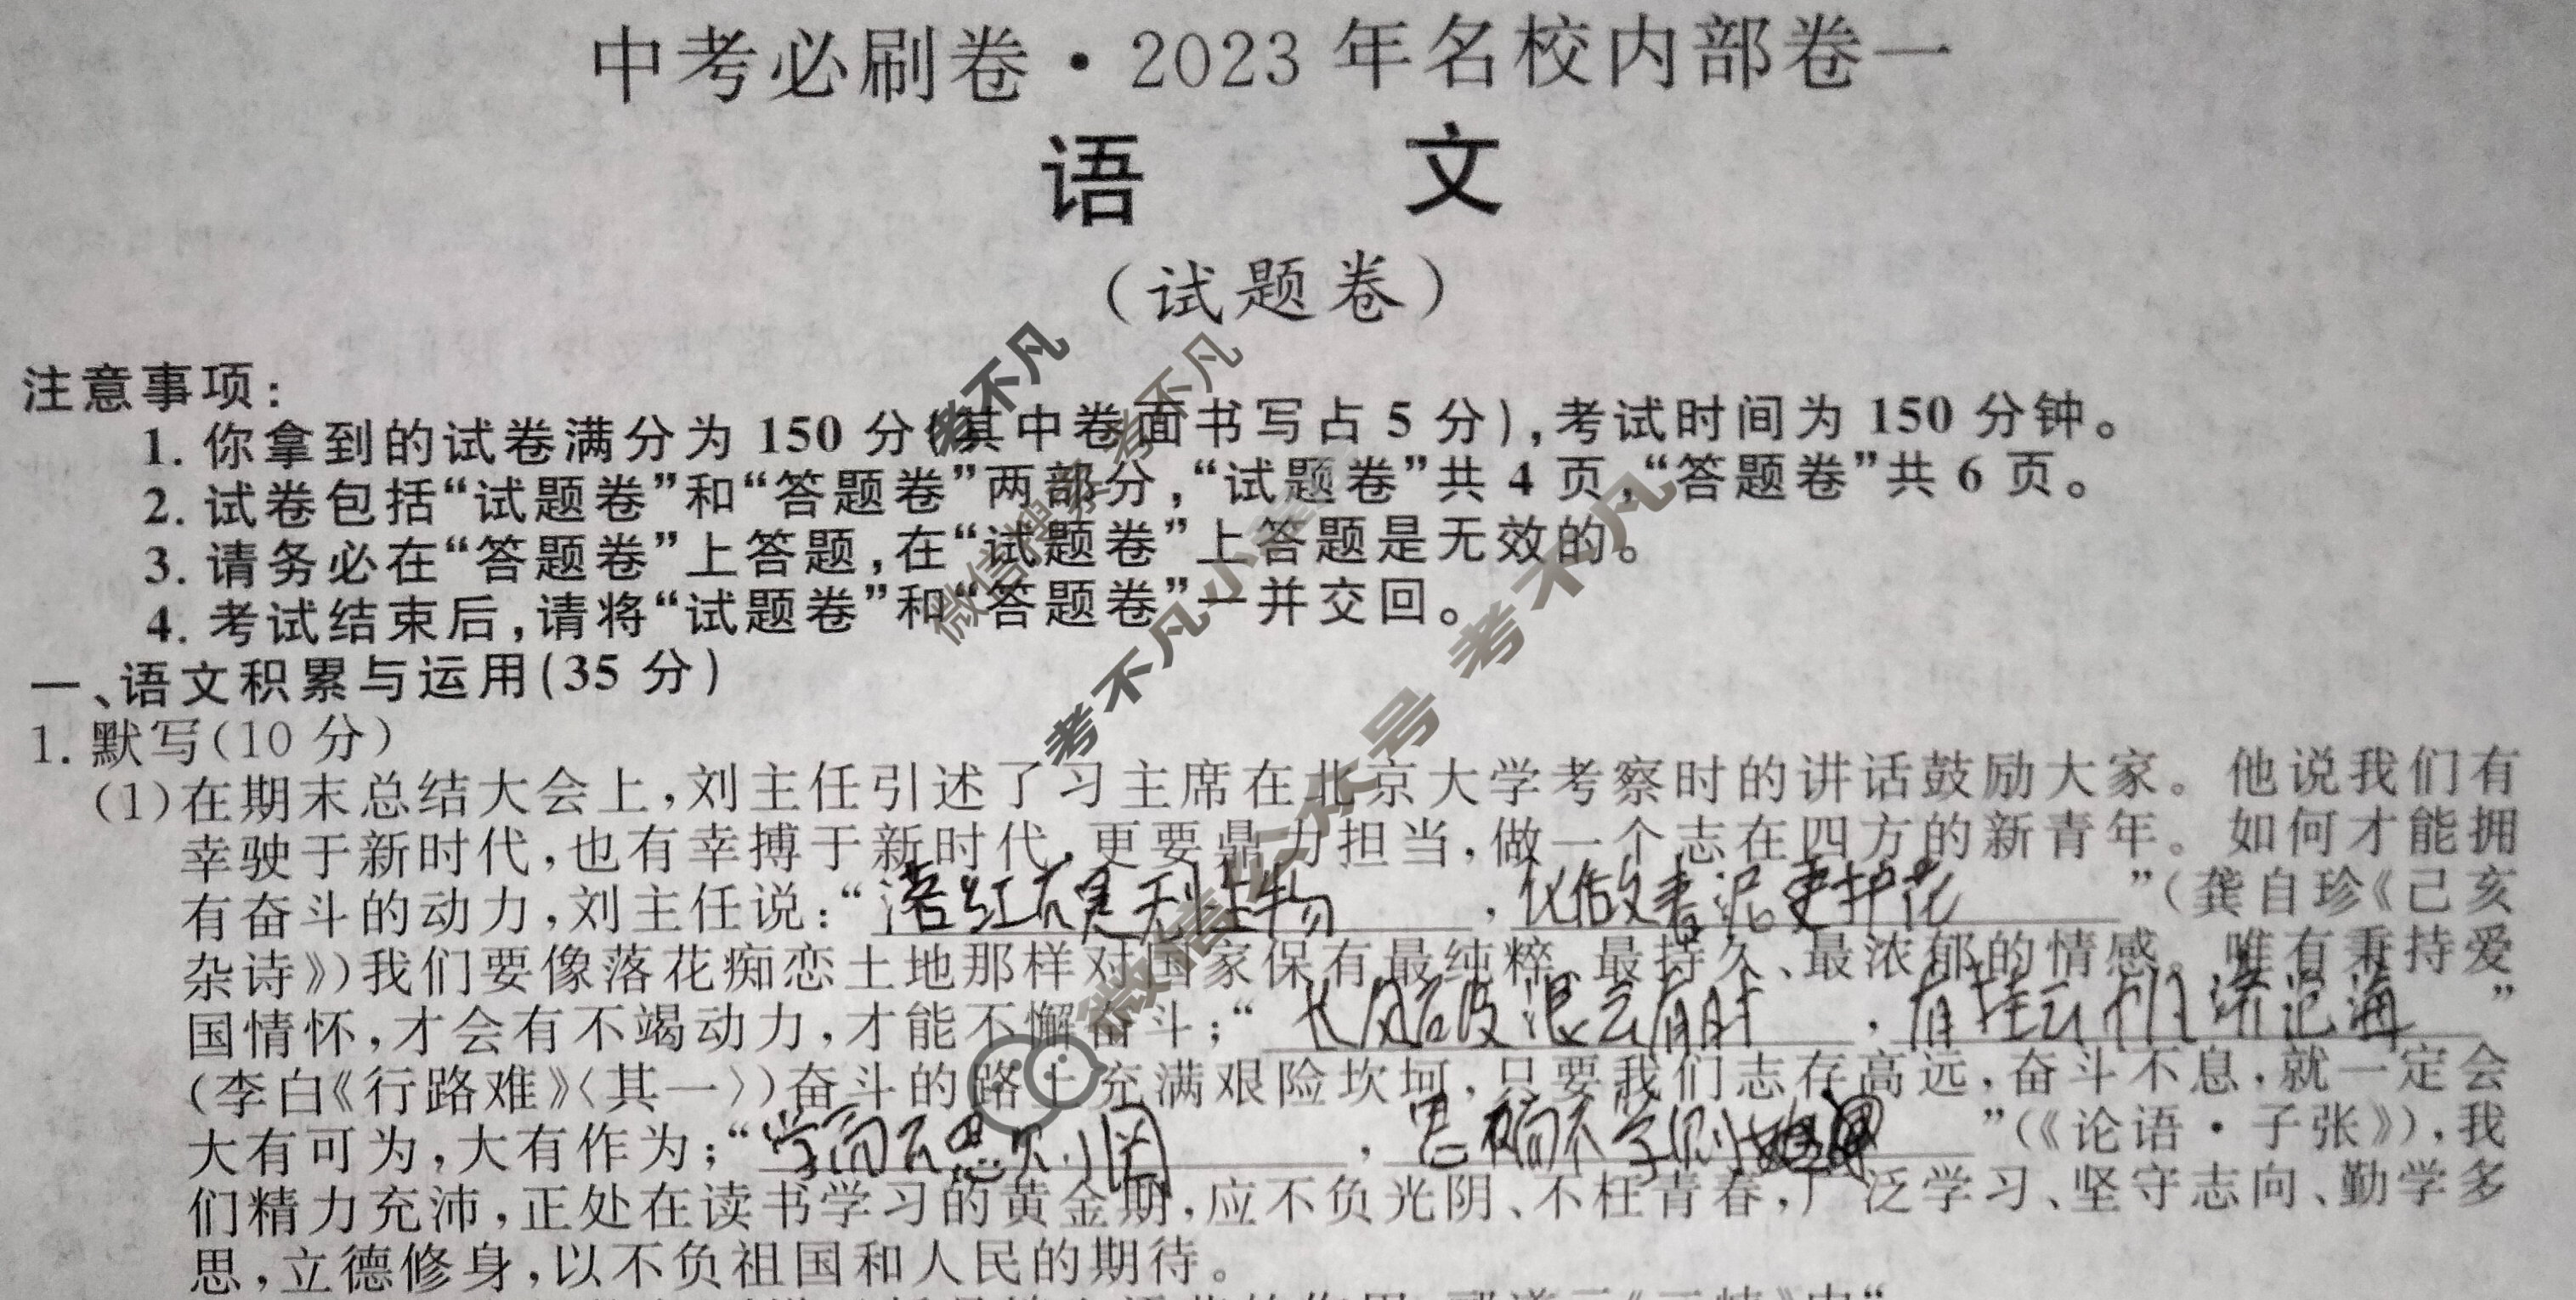 中考必刷卷·2023年名校内部卷一
语 文
(试题卷)
注意事项:
1. 你拿到的试卷满分为 150 分(其中卷面书写占 5 分),考试时间为 150 分钟。
2. 试卷包括“试题卷”和“答题卷”两部分,“试题卷”共 4 页,“答题卷”共 6 页。
3. 请务必在“答题卷”上答题,在“试题卷”上答题是无效的。
4. 考试结束后,请将“试题卷”和“答题卷”一并交回。
一、语文积累与运用(35 分)
1. 默写(10 分)
(1)在期末总结大会上,刘主任引述了习主席在北京大学考察时的讲话鼓励大家。他说我们有
幸驶于新时代,也有幸搏于新时代,更要鼎力担当,做一个志在四方的新青年。如何才能拥
有奋斗的动力,刘主任说:“落红不是无情物,化做春泥更护花”(龚自珍《己亥
杂诗》)我们要像落花痴恋土地那样对国家保有最纯粹、最持久、最浓郁的情感。唯有秉持爱
国情怀,才会有不竭动力,才能不懈奋斗;“长风破浪会有时,直挂云帆济沧海”
(李白《行路难》〈其一〉)奋斗的路上充满艰险坎坷,只要我们志存高远,奋斗不息,就一定会
大有可为,大有作为;“学而不思则罔,思而不学则殆”(《论语·子张》),我
们精力充沛,正处在读书学习的黄金期,应不负光阴、不枉青春,广泛学习、坚守志向、勤学多
思,立德修身,以不负祖国和人民的期待。
考不凡
微信搜索 考不凡
考不凡小
微信公众号 考不凡